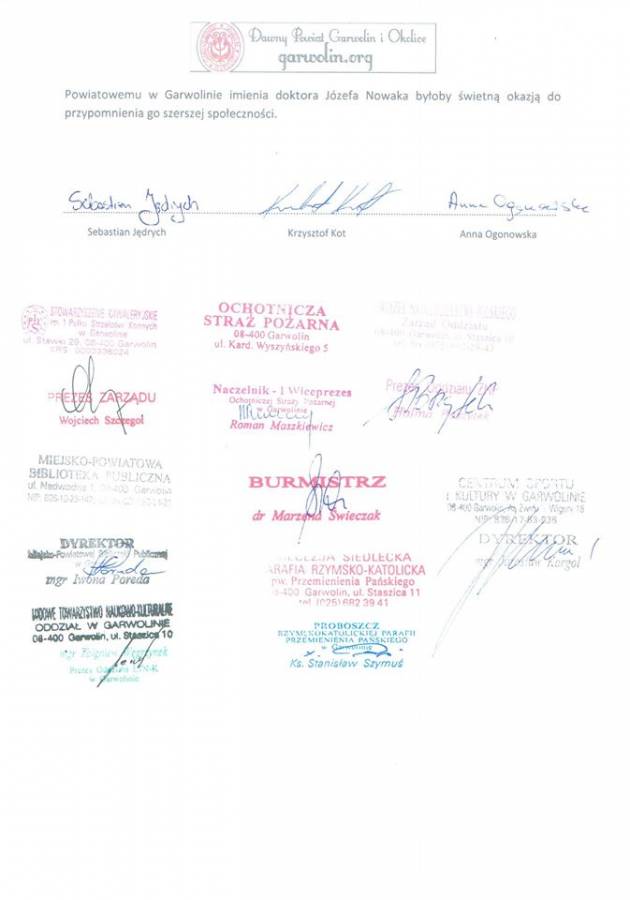 Dawny Powiat Garwolin i Okolice
garwolin.org
Powiatowemu w Garwolinie imienia doktora Józefa Nowaka byłoby świetną okazją do
przypomnienia go szerszej społeczności.
Sebastian Jędrych
Krzysztof Kot
Anna Ogonowska
Sebastian Jędrych
Krzysztof Kot
Anna Ogonowska
STOWARZYSZENIE KAWALERYJSKIE
im. 1 Pułku Strzelców Konnych
w Garwolinie
08-400 Garwolin
PREZES ZARZĄDU
Wojciech Szczegot
OCHOTNICZA
STRAŻ POŻARNA
08-400 Garwolin
ul. Kard. Wyszyńskiego 5
Zarząd Oddziału
Naczelnik - I Wiceprezes
Ochotniczej Straży Pożarnej
w Garwolinie
Roman Maszkiewicz
Prezes Oddziału
MIEJSKO-POWIATOWA
BIBLIOTEKA PUBLICZNA
ul. Nadwodna 1, 08-400 Garwolin
DYREKTOR
Miejsko-Powiatowej Biblioteki Publicznej
mgr Iwona Poreda
BURMISTRZ
dr Marzena Świeczak
CENTRUM SPORTU
I KULTURY W GARWOLINIE
08-400 Garwolin
DYREKTOR
DIECEZJA SIEDLECKA
PARAFIA RZYMSKO-KATOLICKA
pw. Przemienienia Pańskiego
08-400 Garwolin, ul. Staszica 11
tel. (025) 682 39 41
PROBOSZCZ
RZYMSKOKATOLICKIEJ PARAFII
PRZEMIENIENIA PAŃSKIEGO
w Garwolinie
Ks. Stanisław Szymuś
LUDOWE TOWARZYSTWO NAUKOWO-KULTURALNE
ODDZIAŁ W GARWOLINIE
08-400 Garwolin, ul. Staszica 10
mgr Zbigniew
w Garwolinie